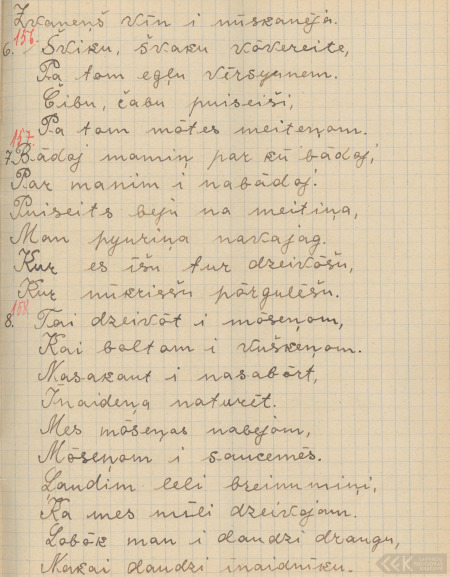 Zvaneņš vin i nūskanēja.
156.
6. Šviku, švaku vōvereite,
Pa tom egļu vīrsyunem.
Čibu, čabu puiseiši,
Pa tom mōtes meiteņom.
157.
7. Bādoj mamiņ par kū bādoj,
Par manim i nabādoj.
Puiseits beju na meitiņa,
Man pyuriņa navajag.
Kur es īšu tur dzeivōšu,
Kur nūkrisšu pōrgulēšu.
158.
8. Tai dzeivōt i mōseņom,
Kai boltom i vušķeņom.
Nasakaut i nasabōrt,
Īnaideņa naturēt.
Mes mōseņas nabejom,
Mōseņom i saucemēs.
Laudim leli breinumiņi,
Ka mes mīļi dzeivojam.
Lobōk man i daudzi draugu,
Nakai daudzi īnaidnīku.